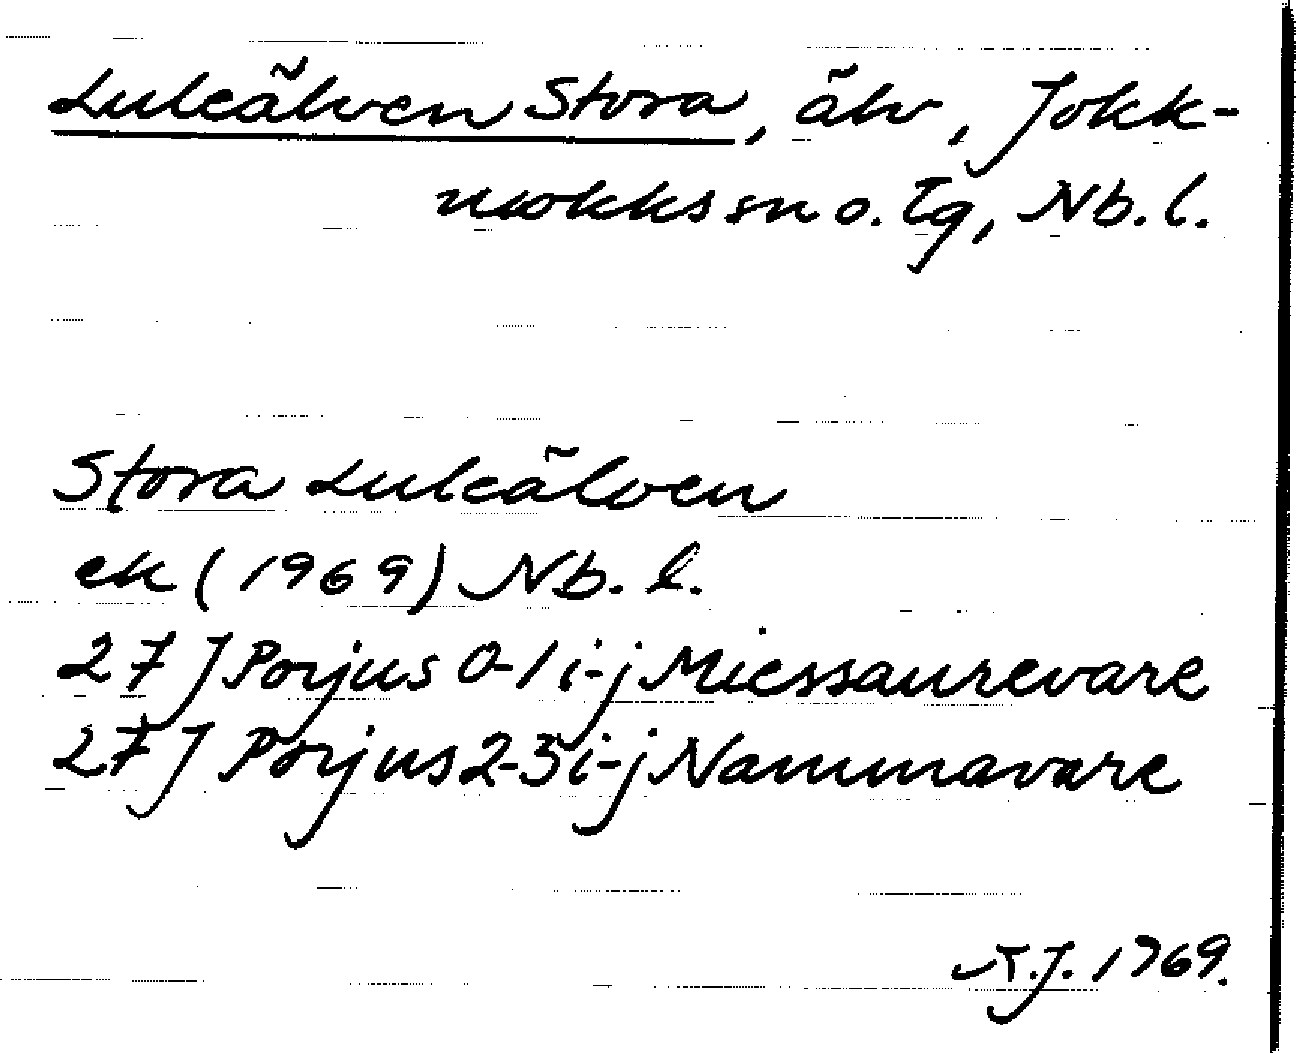 Luleälven Stora, älv, Jokk-
mokks sn o. tg, Nb. l.
Stora Luleälven
ek (1969) Nb. l.
27 J Porjus 0-1 i-j Miessaurevare
27 J Porjus 2-3 i-j Nammavare
1969.